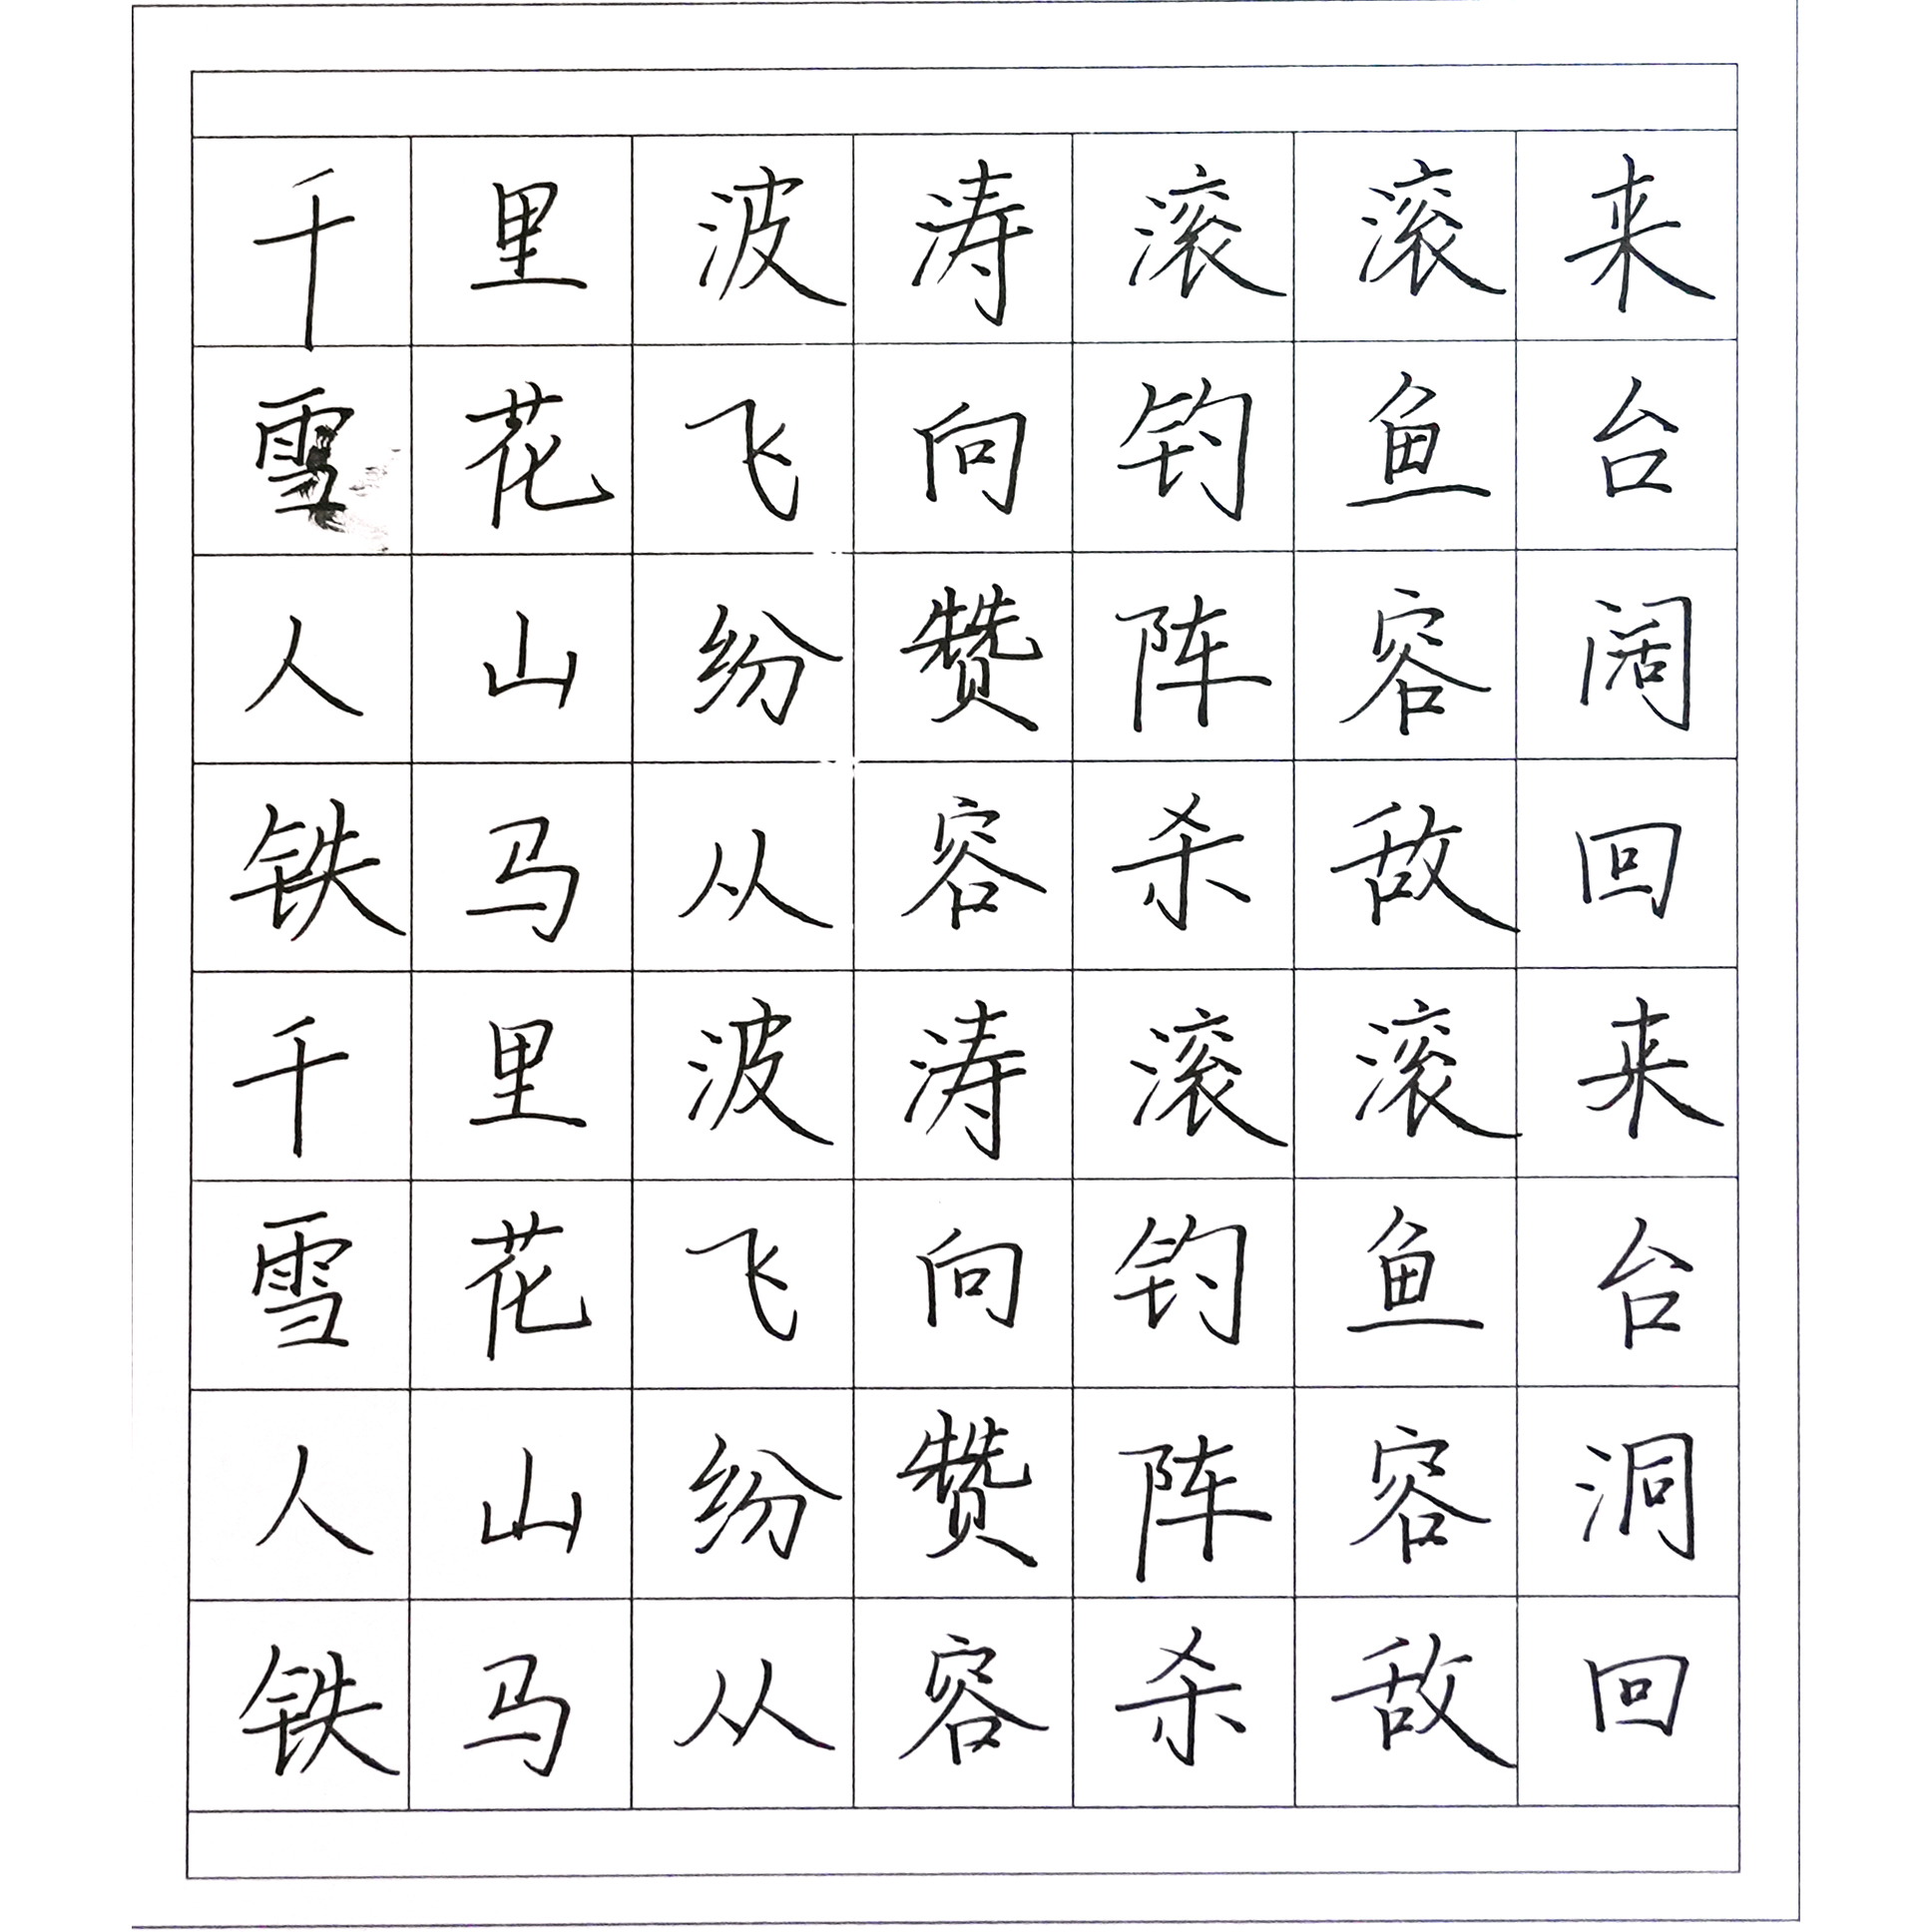 千里波涛滚滚来
雪花飞向钓鱼台
人山纷赞阵容阔
铁马从容杀敌回
千里波涛滚滚来
雪花飞向钓鱼台
人山纷赞阵容洞
铁马从容杀敌回